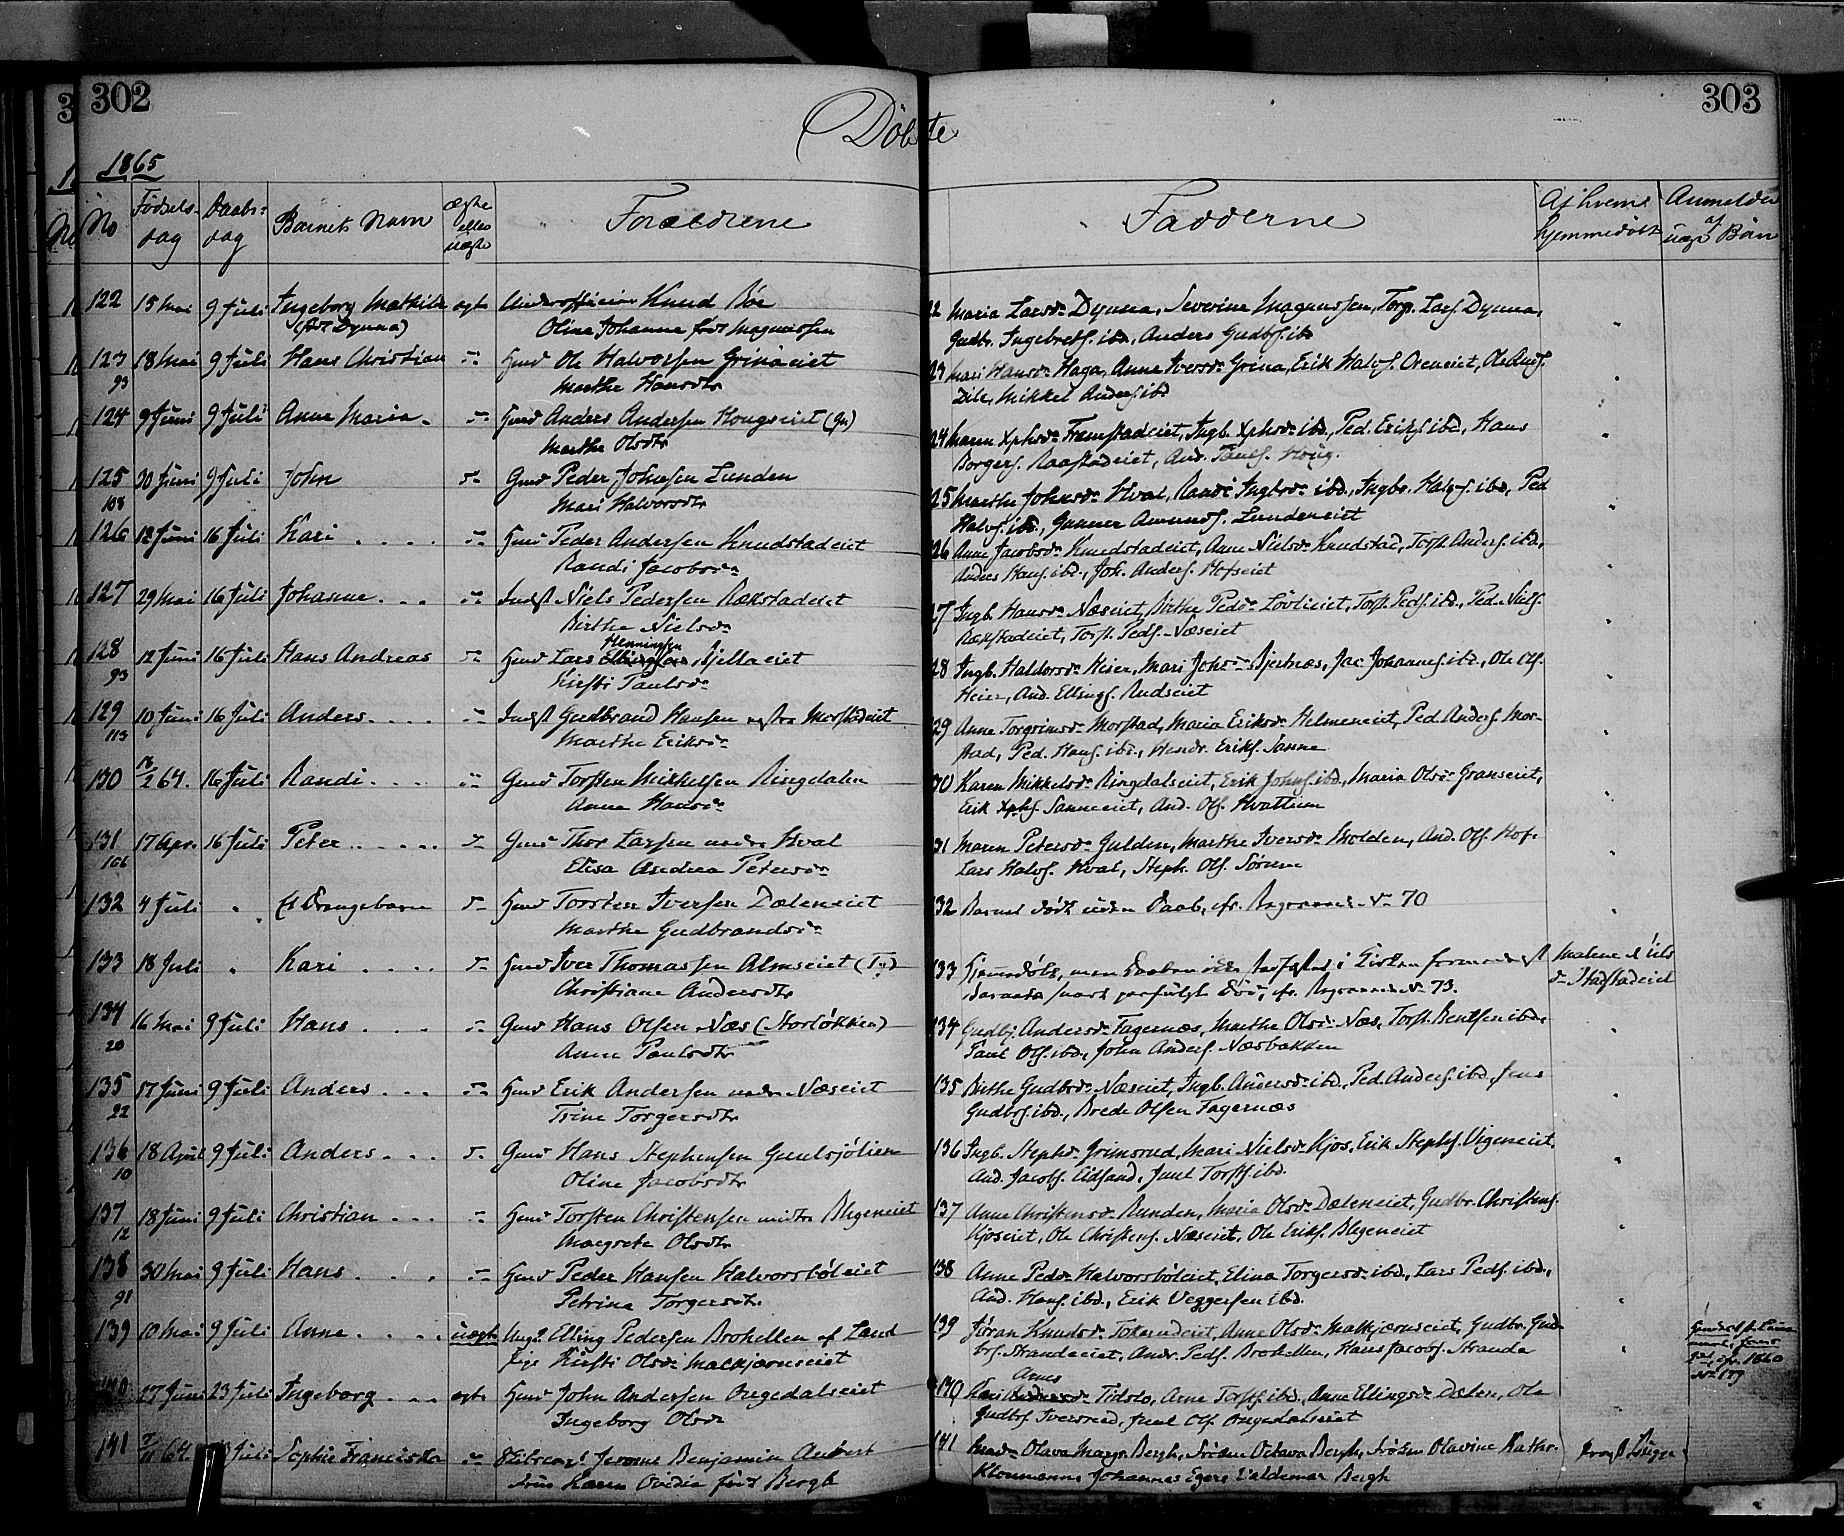 302
303
Døbte
1865
No
Fødsels-
dag
Daabs-
dag
Barnets Navn
ægte
eller
uægte
Forældrene
Fadderne
Af hvem
hjemmedøbt
Anmelder
af
uægt Børn
122 15 Mai 9 Juli Ingeborg Mathilde ægte Underofficier Knud Bøe
(født Dynna) Olina Johanne født Magnussen
123 18 Mai 9 Juli Hans Christian Gmd Ole Halvorsen Grinaeiet
93 Marthe Hansdtr
124 9 Juni 9 Juli Anne Maria Gmd Anders Andersen Hougseiet (Gr)
Marthe Olsdtr
125 30 Juni 9 Juli John Gmd Peder Johnsen Lunden
108 Mari Halvorsdtr
126 12 Juni 16 Juli Kari Gmd Peder Andersen Knudstadeiet
Randi Jacobsdr
127 29 Mai 16 Juli Johanne Indst Niels Pedersen Rækstadeiet
Birthe Nielsdr
128 12 Juni 16 Juli Hans Andreas Gmd Lars Henningsen Bjellaeiet
93 Kirsti Paulsdr
129 10 Juni 16 Juli Anders Indst Gudbrand Hansen Morstadeiet
113 Marthe Eriksdr
130 16/2 64. 16 Juli Randi Gmd Torsten Mikkelsen Ringdalen
Anne Hansdr
131 17 Apr. 16 Juli Peter Gmd Thor Larsen under Hval
106 Elisa Andrea Petersdr
132 4 Juli Et Drengebarn Gmd Torsten Iversen Dæleneiet
Marthe Gudbrandsdr
133 18 Juli Kari Gmd Iver Thomassen Almseiet
Christiane Andersdtr
134 16 Mai 9 Juli Hans Gmd Hans Olsen Næs (Storløkken)
20 Anne Paulsdtr
135 17 Juni 9 Juli Anders Gmd Erik Andersen under Næseiet
22 Trine Torgersdtr
136 18 April 9 Juli Anders Gmd Hans Stephensen Gulsjølien
10 Oline Jacobsdtr
137 18 Juni 9 Juli Christian Gmd Torsten Christensen Blegeneiet
12 Margrete Olsdtr
138 30 Mai 9 Juli Hans Gmd Peder Hansen Halvorsbøleiet
91 Petrina Torgersdtr
139 10 Mai 9 Juli Anne uægte Ungk. Elling Pedersen Brohellen af Land
Pige Kirsti Olsdr Malkjærnseiet
140 27 Juni 23 Juli Ingeborg ægte Gmd John Andersen Ongedalseiet
Ingeborg Olsdr
141 64. Juli Sophie Franciska Jerome Benjamin Aubert
Karen Ovidia født Bergh
22 Maria Larsdr Dynna, Severine Magnussen, Torg. Lars. Dynna,
Gudbr. Ingebrets. ibd, Anders Gudbrs. ibd
23 Mari Hansdr Haga, Anne Iversdr Grina, Erik Halvs. Oreneiet, Ole Ands.
Mikkel Anders. ibd
24 Maren Xphsdr Framstadeiet, Ingb. Xphsdr ibd, Ped. Eriks. ibd, Hans
Borgers. Raastadeiet, And. Pauls. Houg.
25 Marthe Johnsdr Hval, Randi Ingbrsdr ibd, Ingbr. Halvs. ibd, Ped
Halvs. ibd, Gunner Amunds. Lundeneiet
26 Anne Jacobsdr Knudstadeiet, Anne Nielsdr Knudstad, Torst. Anders. ibd,
Anders Hans. ibd, Joh. Anders. Hofseiet
27 Ingb. Hansdr Næseiet, Birthe Pedsdr Løvlieiet, Torst. Peds. ibd, Ped. Niels.
Rækstadeiet, Torst. Peds. Næseiet
28 Ingb. Haldorsdr Heier, Mari Johsdr Bjertnæs, Jac. Johannes. ibd, Ole Ols.
Heier, And. Ellings. Rudseiet
29 Anne Torgrimsdr Morstad, Maria Eriksdr Helmeneiet, Ped. Anders. Mor-
stad, Ped. Hans. ibd, Hendr. Eriks. Sanne
30 Karen Mikkelsdr Ringdalseiet, Erik Johns. ibd, Maria Olsdr Granseiet,
Erik Xphs. Sanneeiet, And. Ols. Hvattum
31 Maren Petersdr Gulden, Marthe Iversdr Molden, And. Ols. Hof.
Lars Halvs. Hval, Steph. Ols. Sørum
132 Barnet døde uden Daab, cfr. No 70
133 Hjemmedøbt, men Daaben ikke i Kirken formedelst
Barnets snart paafulgte Død, cfr. No 73.
134 Gudbj. Andersdr Fagernæs, Marthe Olsdr Næs, Torst. Bentsen ibd,
Paul Ols. ibd, John Anders. Næsbakken
135 Birthe Gudbrsdr Næseiet, Ingb. Andersdr ibd, Ped. Anders. ibd, Jens
Gudbrs. ibd, Brede Olsen Fagernæs
136 Ingb. Stephsdr Grimsrud, Mari Nielsdr Kjos, Erik Stephs. Vigeneiet,
And. Jacobs. Eidsand, Juul Torsts. ibd.
137 Anne Christensdr Runden, Maria Olsdr Dæleneiet, Gudbr. Christens.
Kjoseiet, Ole Christens. Næseiet, Ole Eriks. Blegeneiet
138 Anne Pedsdr Halvorsbøleiet, Elina Torgersdr ibd, Lars Peds. ibd,
And. Hans. ibd, Erik Veggersen ibd.
139 Jøran Knudsdr Tokerudeiet, Anne Olsdr Malkjærnseiet, Gudbr. Gud-
brs. Strandaeiet, Andr. Peds. Brohellen, Hans Jacobs. Stranda
140 Tidslo, Anne Torsts. ibd, Anne Ellingsdr Dælen, Ole
Gudbrs. Iversrud, Juul Ols. Ongedalseiet
141 Olava Margr. Bergh, Frøken Octava Bergh, Frøken Olavine Kathr.
Kloumann, Johannes Egers Valdemar Bergh
1860
No 179